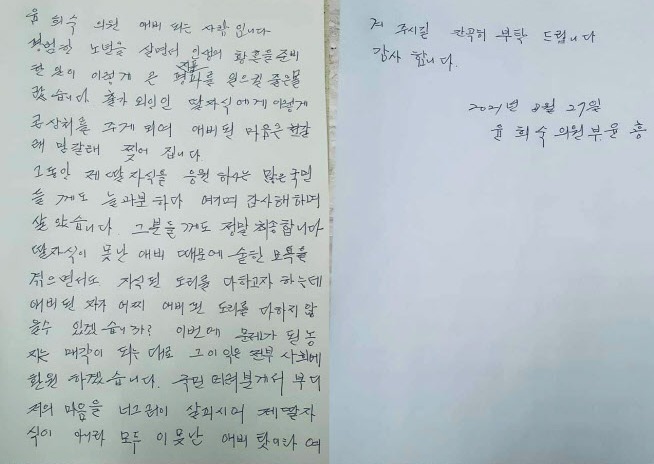 윤 희숙 의원 애비 되는 사람입니다
평범한 노년을 살면서 인생의 황혼을 준비
한 일이 이렇게 큰 평지풍파를 일으킬 줄은 몰
랐습니다. 출가 외인인 딸자식에게 이렇게
큰 상처를 주게 되어 애비된 마음은 천갈
래 만갈래 찢어 집니다.
그동안 제 딸자식을 응원 하시는 많은 국민
들 께도 늘 과분하다 여기며 감사해 하며
살았습니다. 그분들 께도 정말 죄송합니다
딸자식이 못난 애비 때문에 숱한 모욕을
겪으면서도 자식된 도리를 다하고자 하는데
애비된 자가 어찌 애비된 도리를 다하지 않
을수 있겠습니까? 이번에 문제가 된 농
지는 매각이 되는 대로 그 이익은 전부 사회에
환원 하겠습니다. 국민 여러분께서 부디
저의 마음을 너그러이 살피시어 제 딸자
식이 아니라 모두 이 못난 애비 탓이라 여
겨 주시길 간곡히 부탁 드립니다
감사 합니다.
2021년 8월 27일
윤 희숙 의원 부 윤 흥